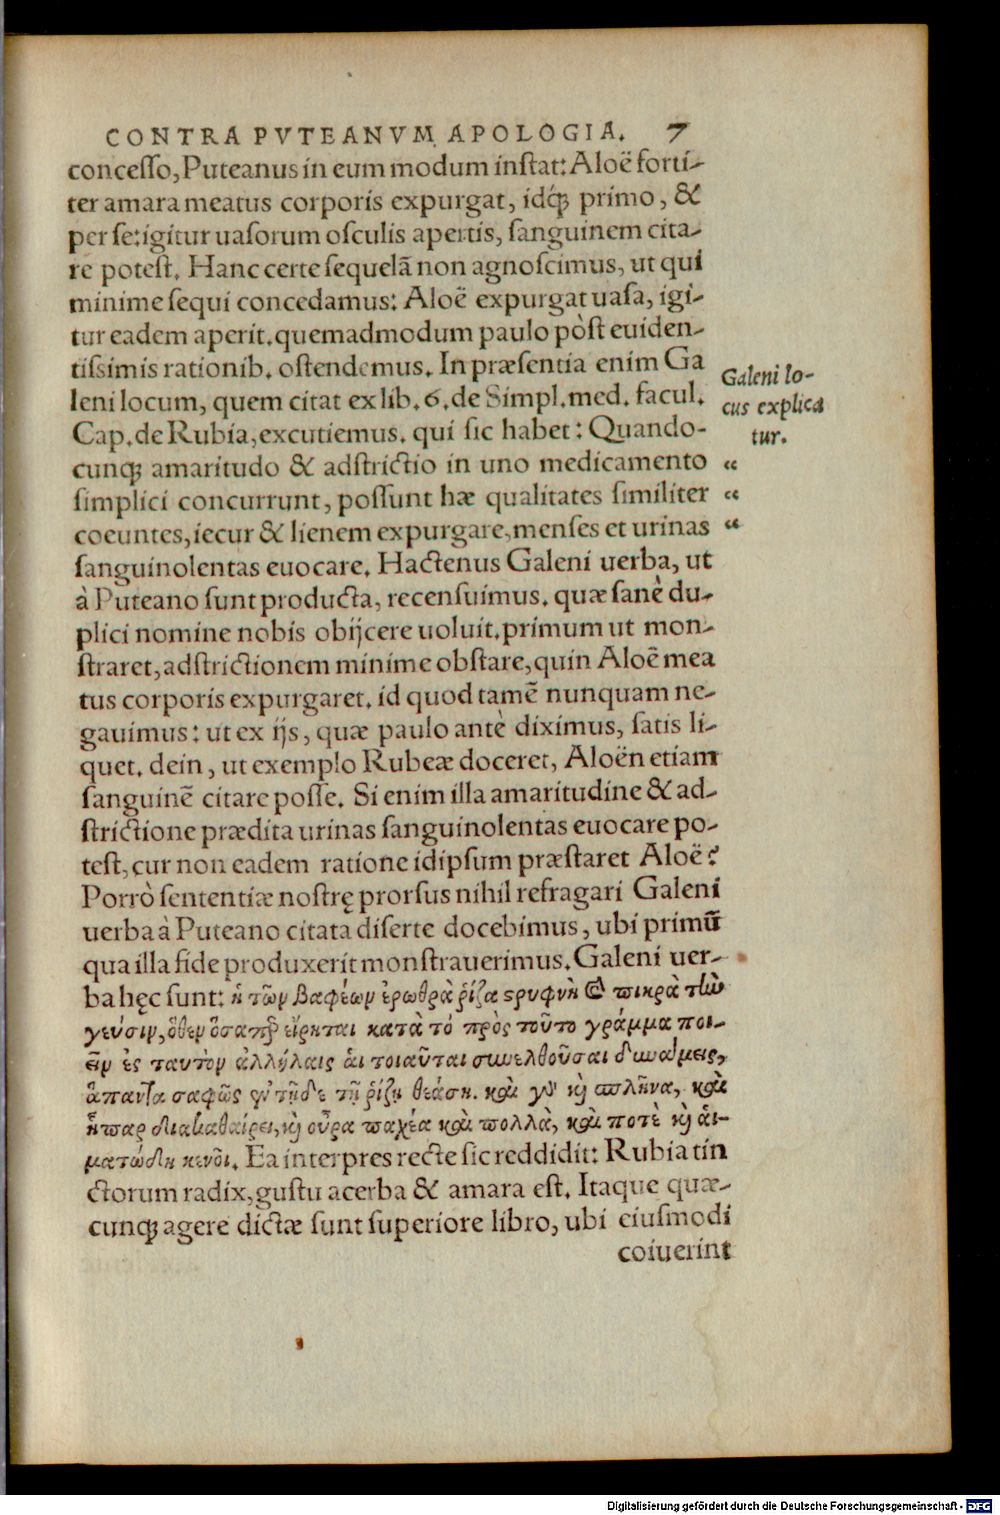 CONTRA PVTEANVM APOLOGIA. 7
concesso, Puteanus in eum modum instat: Aloë forti-
ter amara meatus corporis expurgat, idq́; primo, &
per se: igitur uasorum osculis apertis, sanguinem cita-
re potest. Hanc certe sequelã non agnoscimus, ut qui
minime sequi concedamus: Aloë expurgat uasa, igi-
tur eadem aperit. quemadmodum paulo pòst euiden-
tissimis rationib. ostendemus. In præsentia enim Ga
leni locum, quem citat ex lib. 6. de Simpl. med. facul.
Cap. de Rubia, excutiemus. qui sic habet: Quando-
cunq; amaritudo & adstrictio in uno medicamento
simplici concurrunt, possunt hæ qualitates similiter
coeuntes, iecur & lienem expurgare, menses et urinas
sanguinolentas euocare. Hactenus Galeni uerba, ut
à Puteano sunt producta, recensuimus. quæ sanè du-
plici nomine nobis obijcere uoluit. primum ut mon-
straret, adstrictionem minime obstare, quin Aloë mea
tus corporis expurgaret. id quod tamẽ nunquam ne-
gauimus: ut ex ijs, quæ paulo antè diximus, satis li-
quet. dein, ut exemplo Rubeæ doceret, Aloën etiam
sanguinẽ citare posse. Si enim illa amaritudine & ad-
strictione prædita urinas sanguinolentas euocare po-
test, cur non eadem ratione idipsum præstaret Aloë?
Porrò sententiæ nostrę prorsus nihil refragari Galeni
uerba à Puteano citata diserte docebimus, ubi primũ
qua illa fide produxerit monstrauerimus. Galeni uer-
ba hęc sunt: ἡ τῶν βαφέων ἐρωθρὰ ῥίζα στρυφνὴ καὶ πικρὰ τὴν
γεύσιν, ὅθεν ὅσαπερ εἴρηται κατὰ τὸ πρὸς τοῦτο γράμμα ποι-
εῖν ἐς ταυτὸν ἀλλήλαις ἁι τοιαῦται συνελθοῦσαι δυνάμεις,
ἅπαντα σαφῶς ἐν τῇδε τῇ ῥίζῃ θεάσῃ. καὶ γὰρ καὶ σπλῆνα, καὶ
ἧπαρ διακαθαίρει, καὶ οὖρα παχέα καὶ πολλὰ, καὶ ποτὲ καὶ ἁι-
ματώδη κινεῖ. Ea interpres recte sic reddidit: Rubia tin
ctorum radix, gustu acerba & amara est. Itaque quæ-
cunq; agere dictæ sunt superiore libro, ubi eiusmodi
coiuerint
Galeni lo-
cus explica
tur.
“
“
“
Digitalisierung gefördert durch die Deutsche Forschungsgemeinschaft - DFG